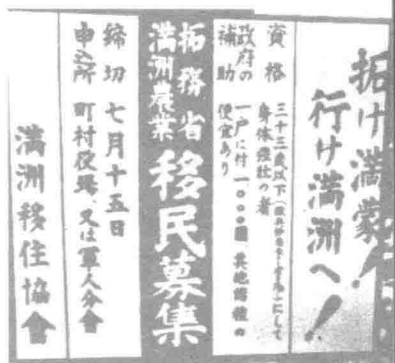 拓け満蒙！
行け満洲へ！
資格
三十三歳以下
にして
身体強壮の者
政府の補助
一戸に付一〇〇〇圓其他諸種の
便宜あり
拓務省
満洲農業
移民募集
締切 七月十五日
申込所 町村役場、又は軍人分會
満洲移住協會